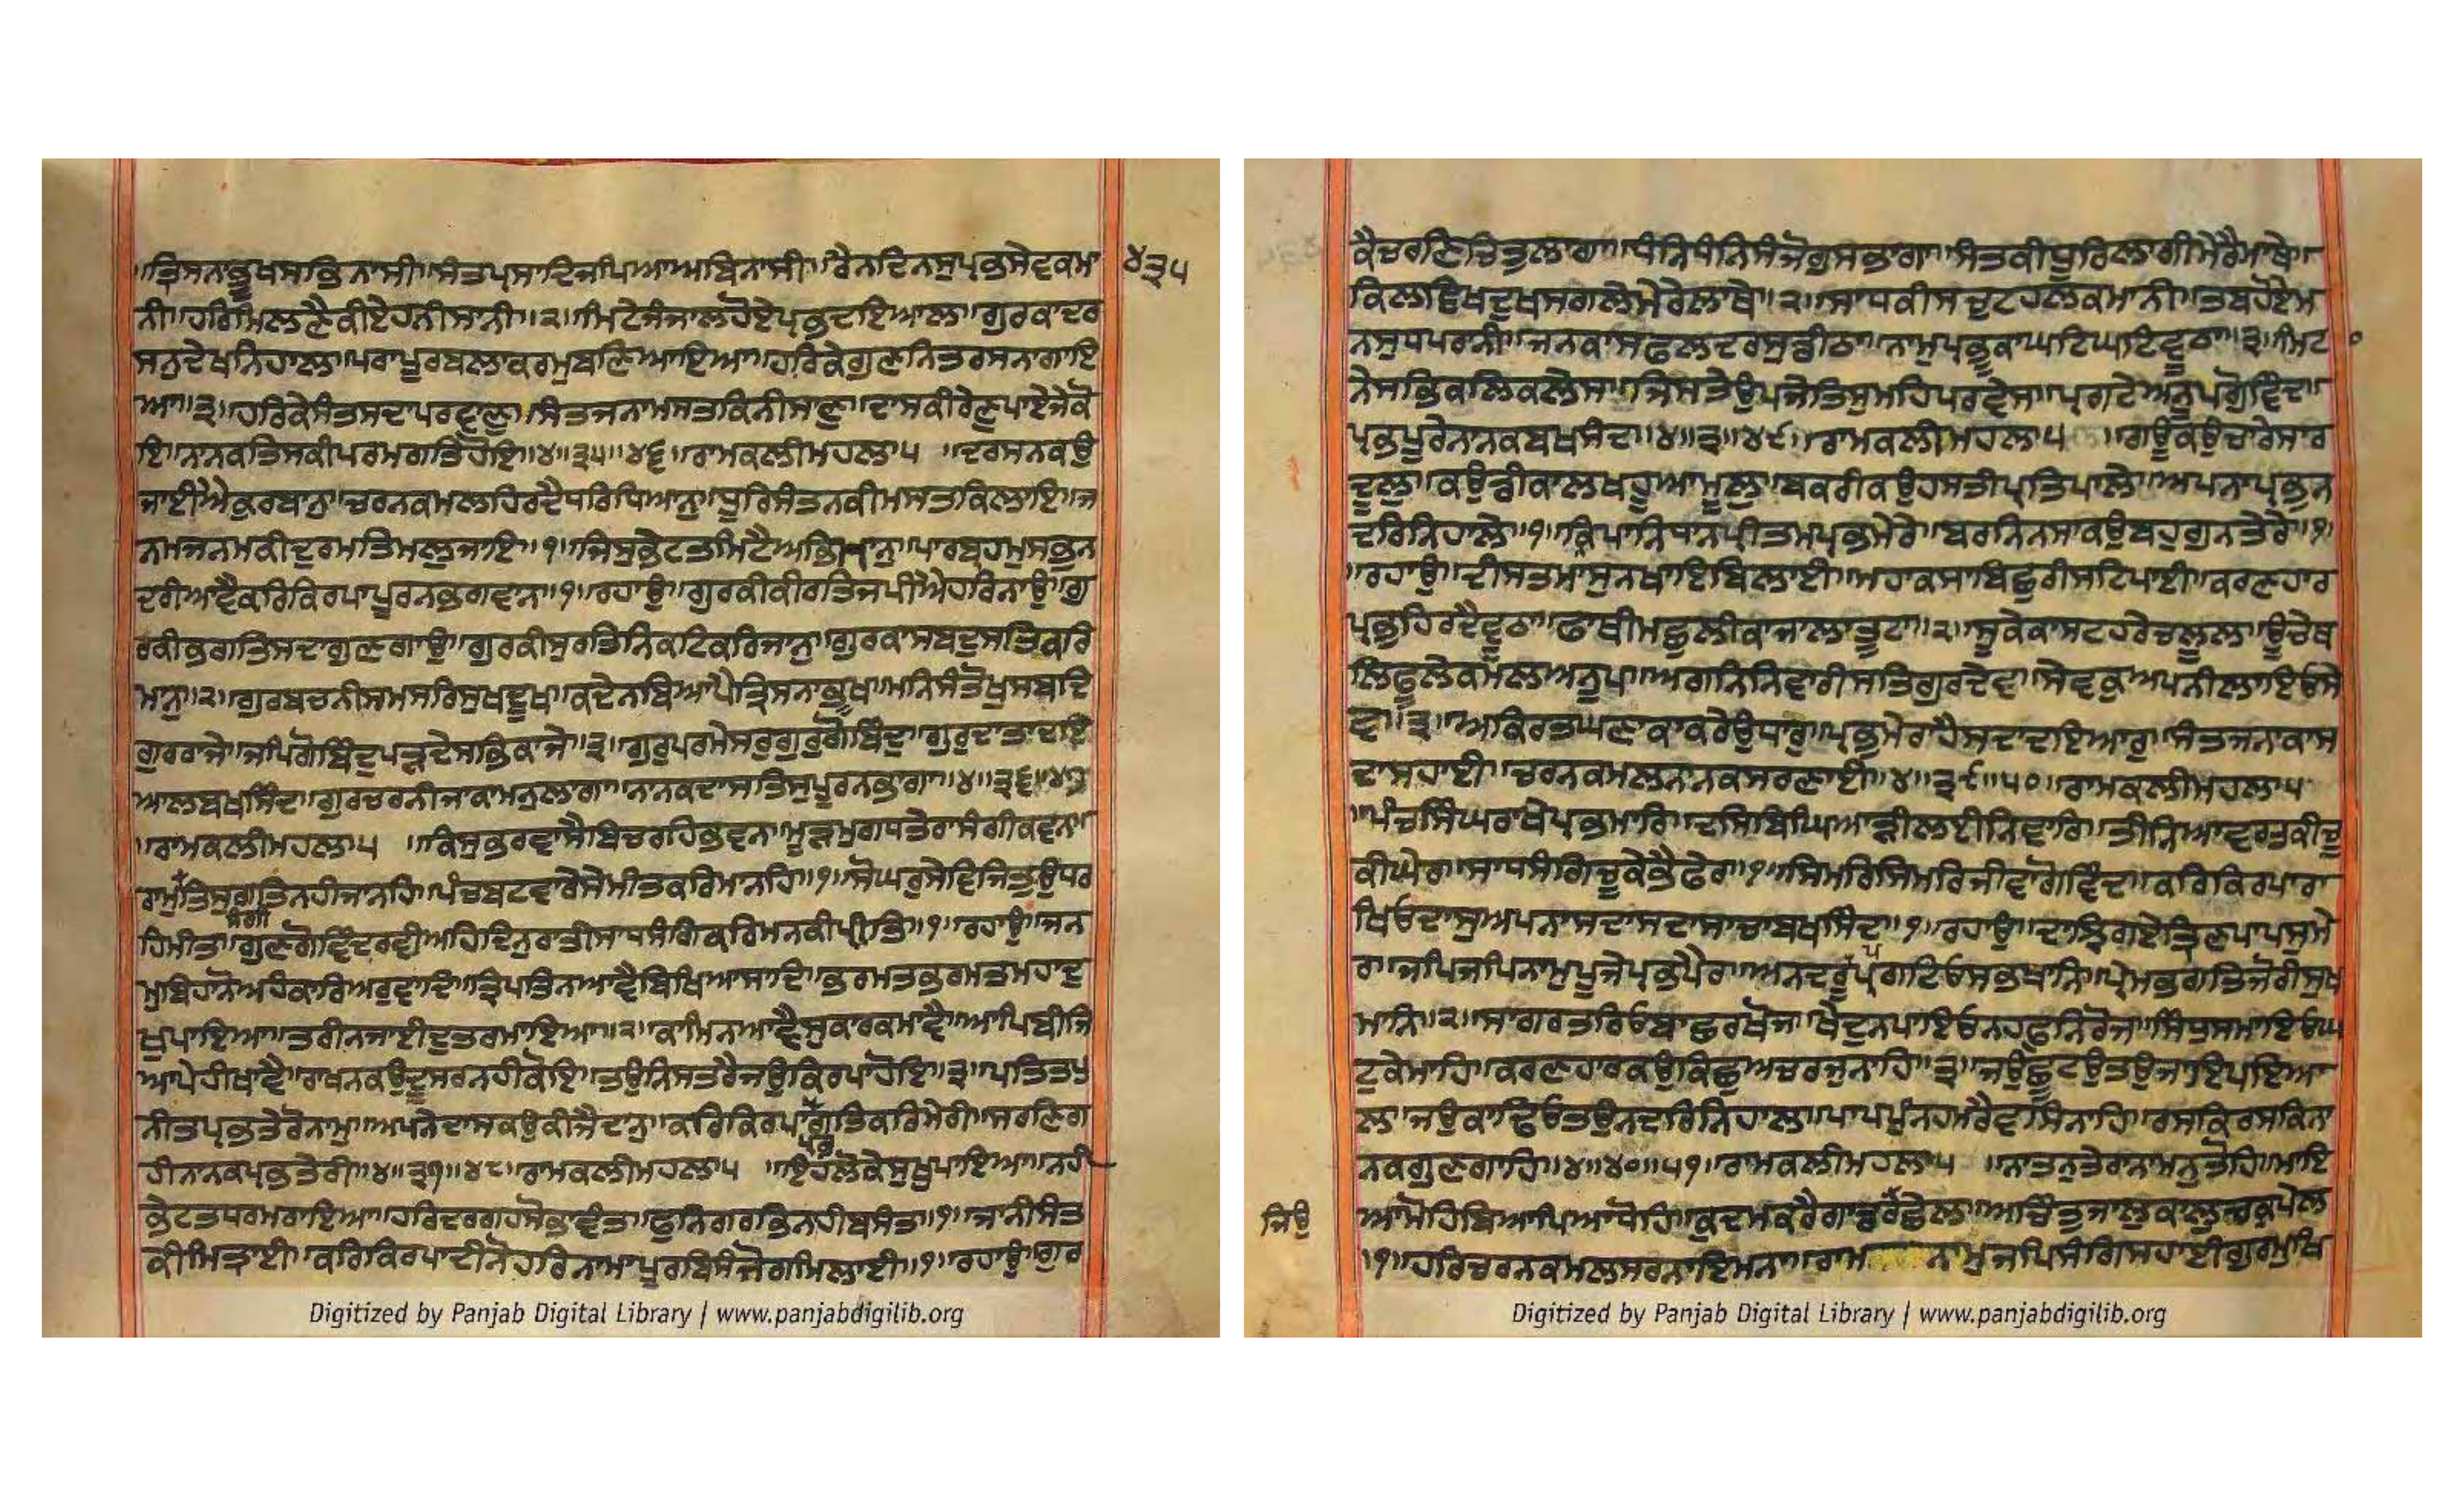 ਤ੍ਰਿਸਨਾਭੂਖਸਭਿਨਾਸੀ॥ਸੰਤਪ੍ਰਸਾਦਿਜਪਿਆਅਬਿਨਾਸੀ॥ਰੈਨਦਿਨਸੁਪ੍ਰਭਸੇਵਕਮਾ
੪੩੫
ਨੀ॥ਹਰਿਮਿਲਣੈਕੀਏਹਨੀਸਾਨੀ॥੨॥ਮਿਟੇਜੰਜਾਲਹੋਏਪ੍ਰਭਦਇਆਲਾ॥ਗੁਰਕਾਦਰ
ਸਨੁਦੇਖਨਿਹਾਲਾ॥ਪਰਾਪੂਰਬਲਾਕਰਮੁਬਣਿਆਇਆ॥ਹਰਿਕੇਗੁਣਨਿਤਰਸਨਾਗਾਇ
ਆ॥੩॥ਹਰਿਕੇਸੰਤਸਦਾਪਰਵਾਣੁ॥ਸੰਤਜਨਾਮਸਤਕਿਨੀਸਾਣੁ॥ਦਾਸਕੀਰੇਣੁਪਾਏਜੇਕੋ
ਇ॥ਨਾਨਕਤਿਸਕੀਪਰਮਗਤਿਹੋਇ॥੪॥੩੫॥੪੬॥ਰਾਮਕਲੀਮਹਲਾ੫ ॥ਦਰਸਨਕਉ
ਜਾਈਐਕੁਰਬਾਨੁ॥ਚਰਨਕਮਲਹਿਰਦੈਧਰਿਧਿਆਨੁ॥ਧੂਰਿਸੰਤਨਕੀਮਸਤਕਿਲਾਇ॥ਜ
ਨਮਜਨਮਕੀਦੁਰਮਤਿਮਲੁਜਾਇ॥੧॥ਜਿਸੁਭੇਟਤਮਿਟੈਅਭਿਮਾਨੁ॥ਪਾਰਬ੍ਰਹਮੁਸਭੁਨ
ਦਰੀਆਵੈਕਰਿਕਿਰਪਾਪੂਰਨਭਗਵਾਨ॥੧॥ਰਹਾਉ॥ਗੁਰਕੀਕੀਰਤਿਜਪੀਐਹਰਿਨਾਉ॥ਗੁ
ਰਕੀਭਗਤਿਸਦਾਗੁਣਗਾਉ॥ਗੁਰਕੀਸੁਰਤਿਨਿਕਟਿਕਰਿਜਾਨੁ॥ਗੁਰਕਾਸਬਦੁਸਤਿਕਰਿ
ਮਾਨੁ॥੨॥ਗੁਰਬਚਨੀਸਮਸਰਿਸੁਖਦੂਖ॥ਕਦੇਨਬਿਆਪੈਤ੍ਰਿਸਨਾਭੂਖ॥ਮਨਿਸੰਤੋਖੁਸਬਦਿ
ਗੁਰਰਾਜੇ॥ਜਪਿਗੋਬਿੰਦੁਪੜਦੇਸਭਿਕਾਜੇ॥੩॥ਗੁਰੁਪਰਮੇਸਰੁਗੁਰੁਗੋਬਿੰਦੁ॥ਗੁਰੁਦਾਤਾਦਇ
ਆਲਬਖਸਿੰਦੁ॥ਗੁਰਚਰਨੀਜਾਕਾਮਨੁਲਾਗਾ॥ਨਾਨਕਦਾਸਤਿਸੁਪੂਰਨਭਾਗਾ॥੪॥੩੬॥੪੭
॥ਰਾਮਕਲੀਮਹਲਾ੫ ॥ਕਿਸੁਭਰਵਾਸੈਬਿਚਰਹਿਭਵਨ॥ਮੂੜਮੁਗਧਤੇਰਾਸੰਗੀਕਵਨ॥
ਰਾਮੁਸੰਗੀਤਿਸੁਗਤਿਨਹੀਜਾਨਹਿ॥ਪੰਚਬਟਵਾਰੇਸੇਮੀਤਕਰਿਮਾਨਹਿ॥੧॥ਸੋਘਰੁਸੇਵਿਜਿਤੁਉਧਰ
ਹਿਮੀਤ॥ਗੁਣਗੋਵਿੰਦਰਵੀਅਹਿਦਿਨੁਰਾਤੀਸਾਧਸੰਗਿਕਰਿਮਨਕੀਪ੍ਰੀਤਿ॥੧॥ਰਹਾਉ॥ਜਨ
ਮੁਬਿਹਾਨੋਅਹੰਕਾਰਿਅਰੁਵਾਦਿ॥ਤ੍ਰਿਪਤਿਨਆਵੈਬਿਖਿਆਸਾਦਿ॥ਭਰਮਤਭਰਮਤਮਹਾਦੁ
ਖੁਪਾਇਆ॥ਤਰੀਨਜਾਈਦੁਤਰਮਾਇਆ॥੨॥ਕਾਮਿਨਆਵੈਸੁਕਾਰਕਮਾਵੈ॥ਆਪਿਬੀਜਿ
ਆਪੇਹੀਖਾਵੈ॥ਰਾਖਨਕਉਦੂਸਰਨਹੀਕੋਇ॥ਤਉਨਿਸਤਰੈਜਉਕਿਰਪਾਹੋਇ॥੩॥ਪਤਿਤਪੁ
ਨੀਤਪ੍ਰਭਤੇਰੋਨਾਮੁ॥ਅਪਨੇਦਾਸਕਉਕੀਜੈਦਾਨੁ॥ਕਰਿਕਿਰਪਾਪ੍ਰਭਗਤਿਕਰਿਮੇਰੀ॥ਸਰਣਿਗ
ਹੀਨਾਨਕਪ੍ਰਭਤੇਰੀ॥੪॥੩੭॥੪੮॥ਰਾਮਕਲੀਮਹਲਾ੫ ॥ਇਹਲੋਕੇਸੁਖੁਪਾਇਆ॥ਨਹੀ
ਭੇਟਤਧਰਮਰਾਇਆ॥ਹਰਿਦਰਗਹਸੋਭਾਵੰਤ॥ਫੁਨਿਗਰਭਿਨਹੀਬਸੰਤ॥੧॥ਜਾਨੀਸੰਤ
ਕੀਮਿਤ੍ਰਾਈ॥ਕਰਿਕਿਰਪਾਦੀਨੋਹਰਿਨਾਮਾਪੂਰਬਿਸੰਜੋਗਮਿਲਾਈ॥੧॥ਰਹਾਉ॥ਗੁਰ
Digitized by Panjab Digital Library | www.panjabdigilib.org
ਕੈਚਰਣਿਚਿਤੁਲਾਗਾ॥ਧੰਨਿਧੰਨਿਸੰਜੋਗੁਸਭਾਗਾ॥ਸੰਤਕੀਧੂਰਿਲਾਗੀਮੇਰੈਮਾਥੇ॥
ਕਿਲਵਿਖਦੁਖਸਗਲੇਮੇਰੇਲਾਥੇ॥੨॥ਸਾਧਕੀਸਚੁਟਹਲਕਮਾਨੀ॥ਤਬਹੋਏਮ
ਨਸੁਧਪਰਾਨੀ॥ਜਨਕਾਸਫਲਦਰਸੁਡੀਠਾ॥ਨਾਮੁਪ੍ਰਭੂਕਾਘਟਿਘਟਿਵੂਠਾ॥੩॥ਮਿਟਾ
ਨੇਸਭਿਕਲਿਕਲੇਸ॥ਜਿਸਤੇਉਪਜੇਤਿਸੁਮਹਿਪਰਵੇਸ॥ਪ੍ਰਗਟੇਅਨੂਪਗੋਵਿੰਦ॥
ਪ੍ਰਭਪੂਰੇਨਾਨਕਬਖਸਿੰਦ॥੪॥੩੮॥੪੯॥ਰਾਮਕਲੀਮਹਲਾ੫ ॥ਗਊਕਉਚਾਰੇਸਾਰ
ਦੂਲੁ॥ਕਉਡੀਕਾਲਖਹੂਆਮੂਲੁ॥ਬਕਰੀਕਉਹਸਤੀਪ੍ਰਤਿਪਾਲੇ॥ਅਪਨਾਪ੍ਰਭੁਨ
ਦਰਿਨਿਹਾਲੇ॥੧॥ਕ੍ਰਿਪਾਨਿਧਾਨਪ੍ਰੀਤਮਪ੍ਰਭਮੇਰੇ॥ਬਰਨਿਨਸਾਕਉਬਹੁਗੁਨਤੇਰੇ॥੧॥
॥ਰਹਾਉ॥ਦੀਸਤਮਾਸੁਨਖਾਇਬਿਲਾਈ॥ਮਹਾਕਸਾਬਿਛੁਰੀਸਟਿਪਾਈ॥ਕਰਣਹਾਰ
ਪ੍ਰਭੁਹਿਰਦੈਵੂਠਾ॥ਫਾਥੀਮਛੁਲੀਕਾਜਾਲਾਤੂਟਾ॥੨॥ਸੂਕੇਕਾਸਟਹਰੇਚਲੂਲ॥ਊਚੇਥ
ਲਿਫੂਲੇਕਮਲਅਨੂਪ॥ਅਗਨਿਨਿਵਾਰੀਸਤਿਗੁਰਦੇਵ॥ਸੇਵਕੁਅਪਨੀਲਾਇਓਸੇ
ਵ॥੩॥ਅਕਿਰਤਘਣਾਕਾਕਰੇਉਧਾਰੁ॥ਪ੍ਰਭੁਮੇਰਾਹੈਸਦਾਦਇਆਰੁ॥ਸੰਤਜਨਾਕਾਸ
ਦਾਸਹਾਈ॥ਚਰਨਕਮਲਨਾਨਕਸਰਣਾਈ॥੪॥੩੯॥੫੦॥ਰਾਮਕਲੀਮਹਲਾ੫
॥ਪੰਚਸਿੰਘਰਾਖੇਪ੍ਰਭਮਾਰਿ॥ਦਸਬਿਘਿਆੜੀਲਈਨਿਵਾਰਿ॥ਤੀਨਿਆਵਰਤਕੀਚੂ
ਕੀਘੇਰ॥ਸਾਧਸੰਗਿਚੂਕੇਭੈਫੇਰ॥੧॥ਸਿਮਰਿਸਿਮਰਿਜੀਵਾਗੋਵਿੰਦ॥ਕਰਿਕਿਰਪਾਰਾ
ਖਿਓਦਾਸੁਅਪਨਾਸਦਾਸਦਾਸਾਚਾਬਖਸਿੰਦ॥੧॥ਰਹਾਉ॥ਦਾਝਿਗਏਤ੍ਰਿਣਪਾਪਸੁਮੇ
ਰ॥ਜਪਿਜਪਿਨਾਮੁਪੂਜੇਪ੍ਰਭਪੈਰ॥ਅਨਦਰੂਪਪ੍ਰਗਟਿਓਸਭਥਾਨਿ॥ਪ੍ਰੇਮਭਗਤਿਜੋਰੀਸੁਖ
ਮਾਨਿ॥੨॥ਸਾਗਰਤਰਿਓਬਾਛਰਖੋਜ॥ਖੇਦੁਨਪਾਇਓਨਹਫੁਨਿਰੋਜ॥ਸਿੰਧੁਸਮਾਇਓਘ
ਟੁਕੇਮਾਹਿ॥ਕਰਣਹਾਰਕਉਕਿਛੁਅਚਰਜੁਨਾਹਿ॥੩॥ਜਉਛੂਟਉਤਉਜਾਇਪਇਆ
ਲ॥ਜਉਕਾਢਿਓਤਉਨਦਰਿਨਿਹਾਲ॥ਪਾਪਪੁੰਨਹਮਰੈਵਸਿਨਾਹਿ॥ਰਸਕਿਰਸਕਿਨਾ
ਨਕਗੁਣਗਾਹਿ॥੪॥੪੦॥੫੧॥ਰਾਮਕਲੀਮਹਲਾ੫ ॥ਨਾਤਨੁਤੇਰਾਨਾਮਨੁਤੋਹਿ॥ਮਾਇ
ਜਿਉ
ਆਮੋਹਿਬਿਆਪਿਆਧੋਹਿ॥ਕੁਦਮਕਰੈਗਾਡਰਛੇਲ॥ਅਚਿੰਤੁਜਾਲੁਕਾਲੁਚਕ੍ਰੁਪੇਲ
॥੧॥ਹਰਿਚਰਨਕਮਲਸਰਨਾਇਮਨਾ॥ਰਾਮ ਨਾਮੁਜਪਿਸੰਗਿਸਹਾਈਗੁਰਮੁਖਿ
Digitized by Panjab Digital Library | www.panjabdigilib.org